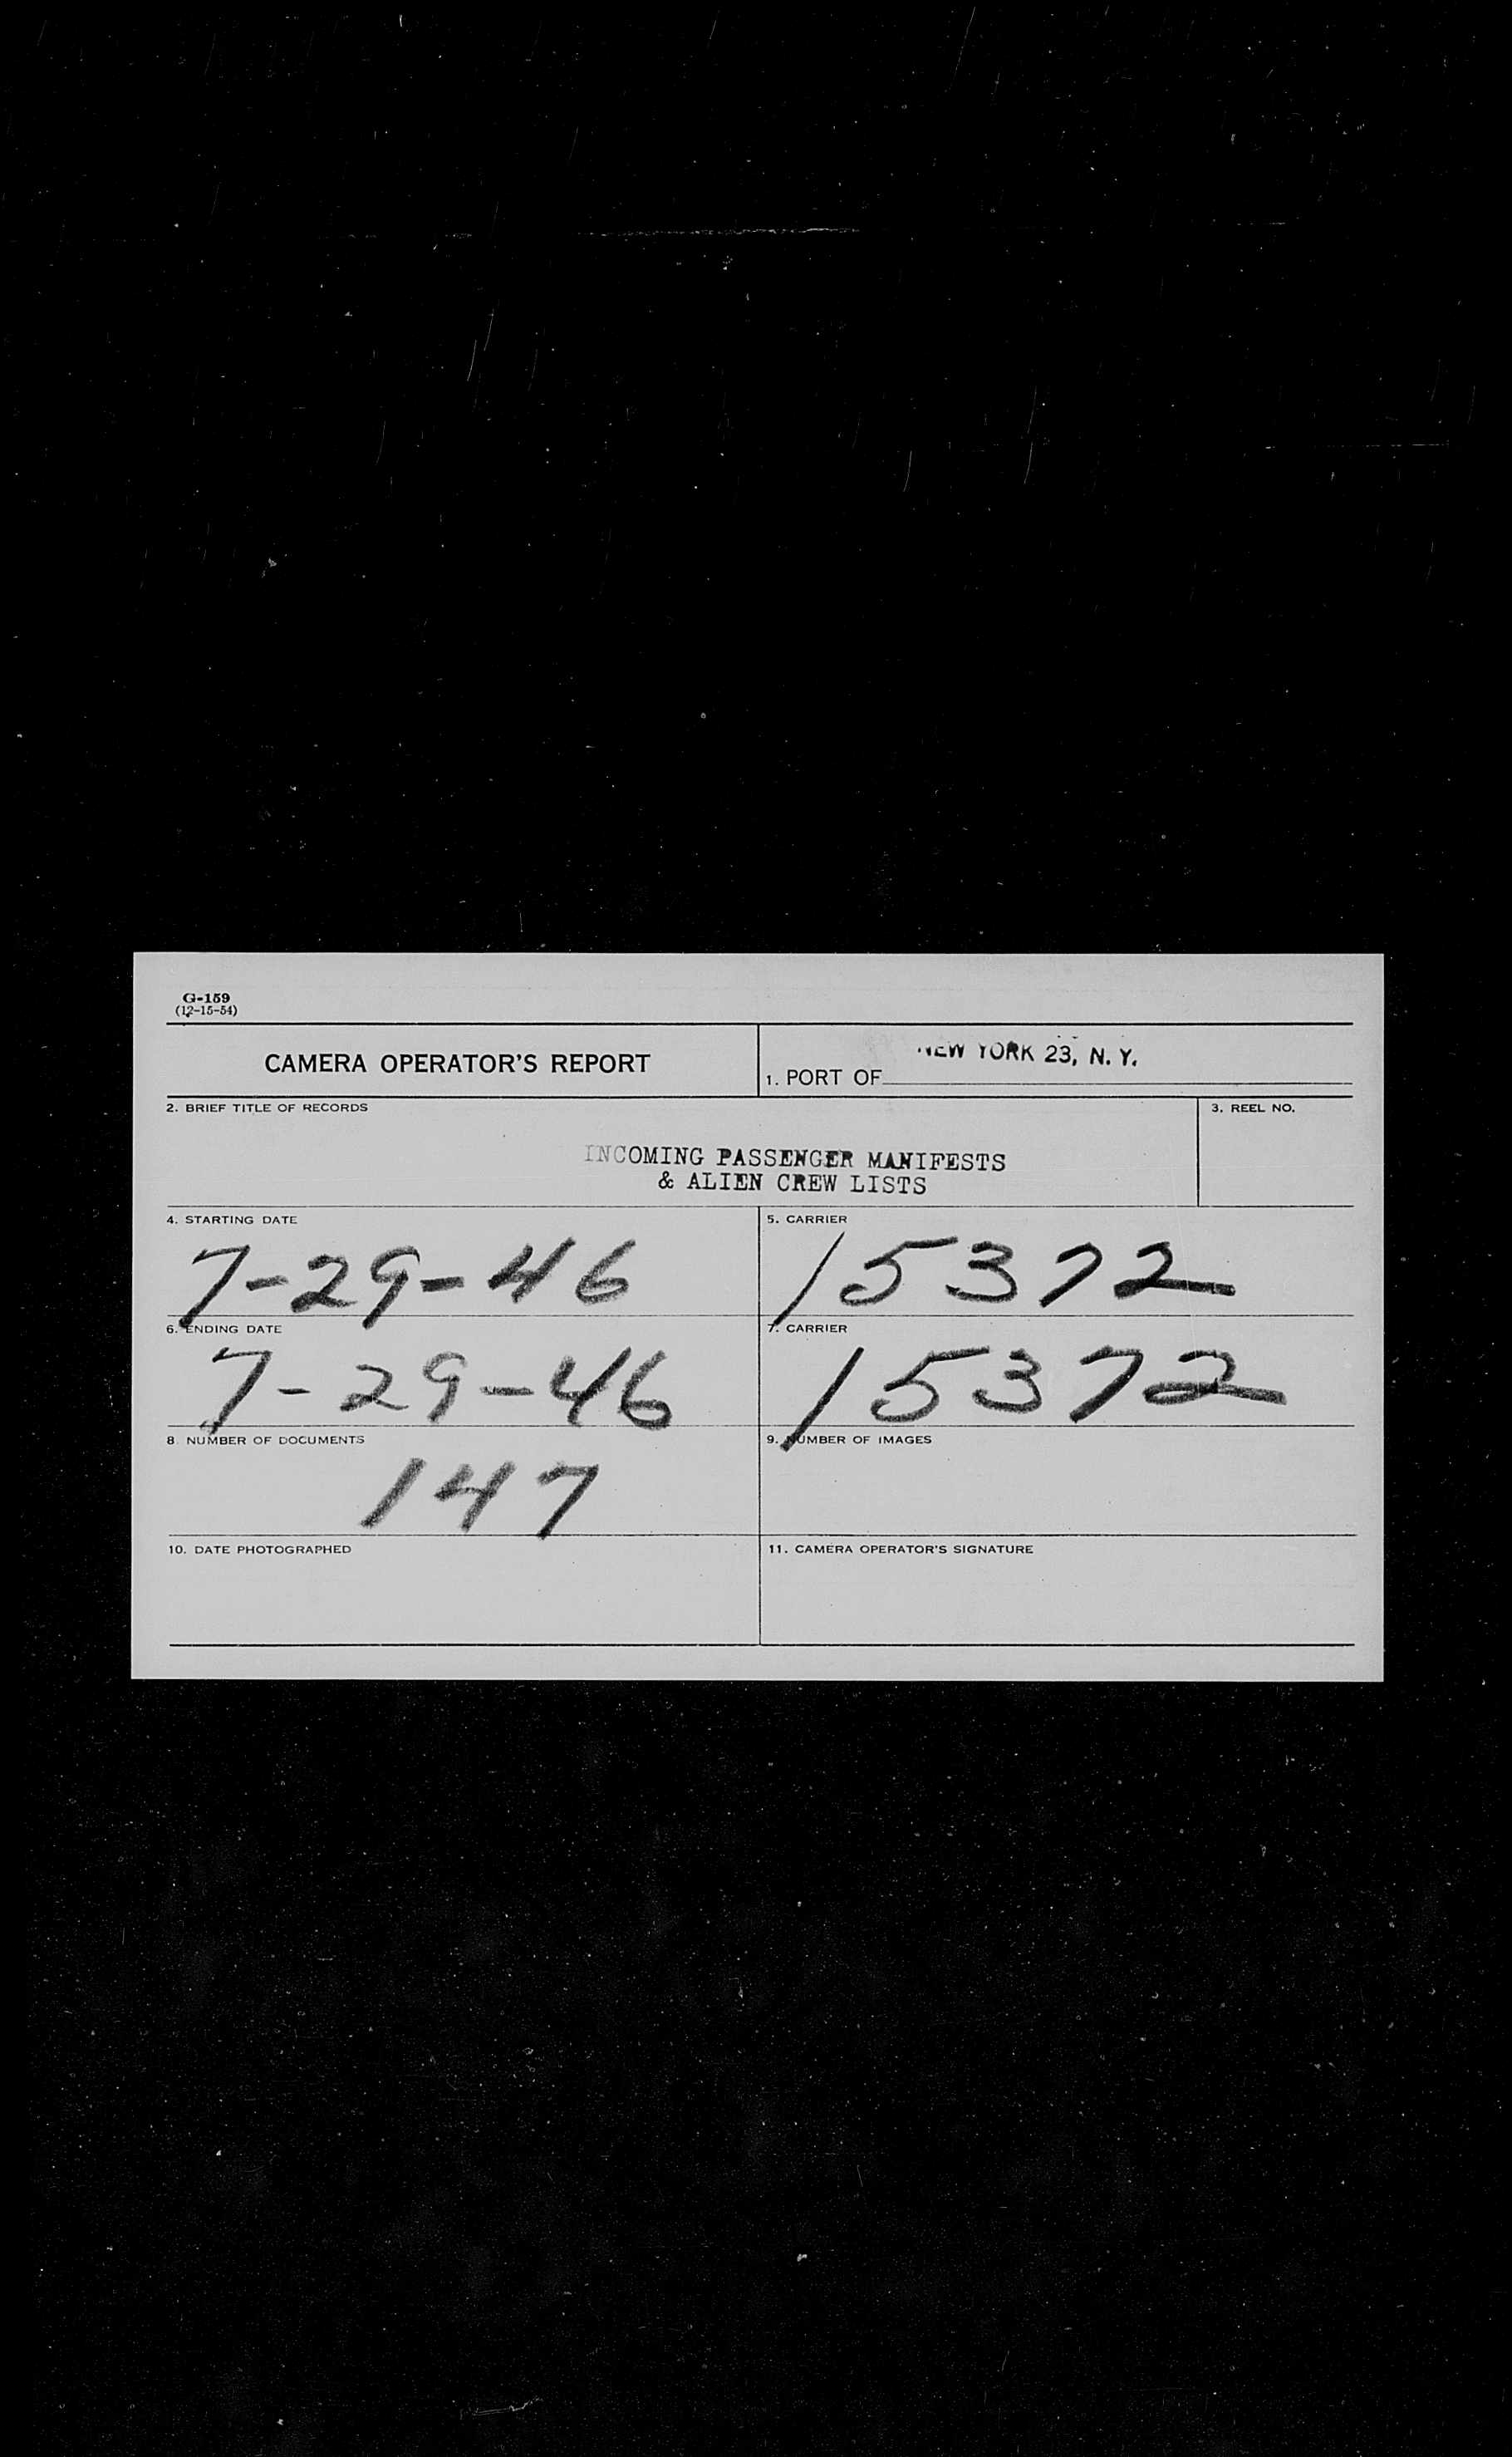 G-159
(12-15-54)
CAMERA OPERATOR'S REPORT
NEW YORK 23, N. Y.
1. PORT OF
2. BRIEF TITLE OF RECORDS
3. REEL NO.
INCOMING PASSENGER MANIFESTS
& ALIEN CREW LISTS
4. STARTING DATE
7-29-46
5. CARRIER
15372
6. ENDING DATE
7-29-46
7. CARRIER
15372
8. NUMBER OF DOCUMENTS
147
9. NUMBER OF IMAGES
10. DATE PHOTOGRAPHED
11. CAMERA OPERATOR'S SIGNATURE